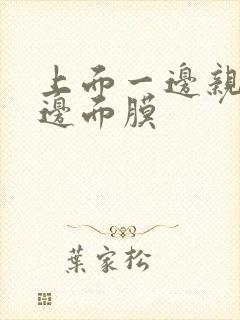 上面一邊親
邊面膜
葉家松